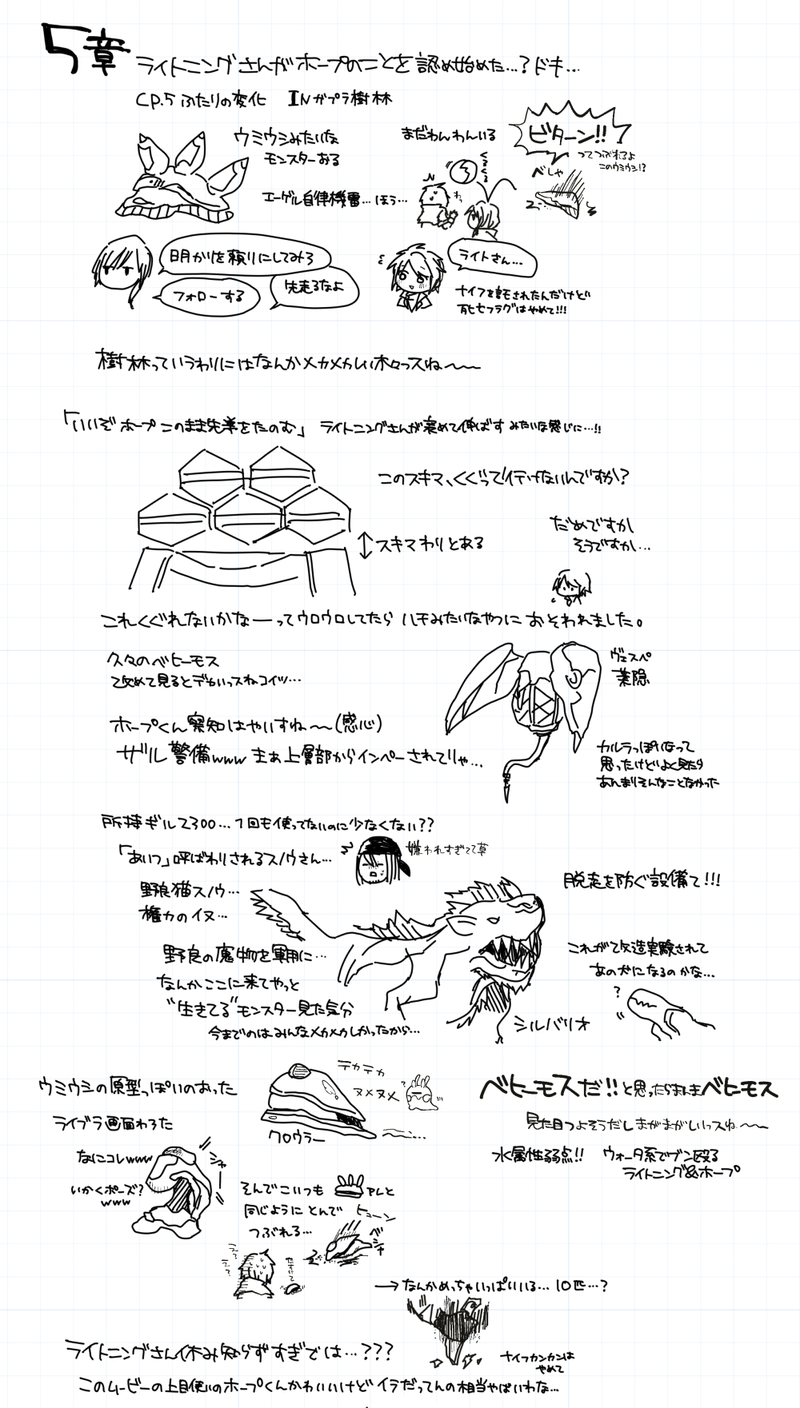 5章 ライトニングさんがホープのことを認め始めた…?ドキ…
CP.5 ふたりの変化 INガプラ樹林
ウミウシみたいな
モンスターある
まだわんわんいる
ビターン!!
ってつぶれるよ
このウミウシ!?
べしゃ
くるくる
エーゲル自律機雷…ほう…
明かりを頼りにしてみろ
フォローする
先走るなよ
ライトさん…
ナイフを託されたんだけど
死亡フラグはやめて!!!
樹林っていうわりにはなんかメカメカしい木々っスね~~
「いいぞ ホープ このまま先導をたのむ」 ライトニングさんが褒めて伸ばす みたいな感じに…!!
このスキマ、くぐって行けないんですか?
スキマわりとある
だめですか
そうですか…
これくぐれないかなーってウロウロしてたら ハチみたいなやつに おそわれました。
久々のベヒーモス
改めて見るとデカいっスねコイツ…
ヴェスペ
葉隠
ホープくん察知はやいすね~~(感心)
ザル警備www まぁ上層部からインペーされてりゃ…
カルラっぽいなって
思ったけどよく見たら
あんまりそんなことなかった
所持ギル2300…1回も使ってないのに少なくない??
「あいつ」呼ばわりされるスノウさん…
嫌われすぎてて草
野良猫スノウ…
権力のイヌ…
脱走を防ぐ設備て!!!
野良の魔物を軍用に…
なんかここに来てやっと
"生きてる"モンスター見た気分
今までのはみんなメカメカしかったから…
これがで改造実験されて
あの犬になるのかな…
?
シルバリオ
ウミウシの原型っぽいのあった
テカテカ
ヌメヌメ
?
クロウラー
ベヒーモスだ!!と思ったらまんまベヒーモス
見た目つよそうだしまがまがしいっスね~~
水属性弱点!! ウォータ系でブン殴る
ライトニング&ホープ
ライブラ画面わろた
なにコレwww
シャー
いかくポーズ?
www
そんでこいつも アレと
同じように とんで ヒューン
つぶれる…
ベシャ
→なんかめっちゃいっぱいいる…10匹…?
ライトニングさん休み知らずすぎでは…???
ナイフカンカンは
やめて
このムービーの上目使いのホープくんかわいいけど イラだってんの相当やばいわな…